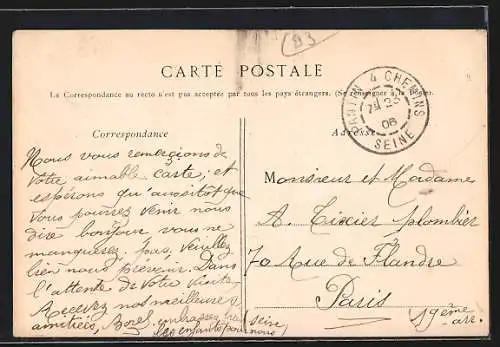 83
CARTE POSTALE
La Correspondance au recto n'est pas acceptée par tous les pays étrangers. (Se renseigner à la Poste).
PANTIN 4 CHEMINS
25
06
SEINE
Correspondance
Adresse
Nous vous remercions de
votre aimable carte; et
espérons qu'aussitot que
vous pourrez venir nous
dire bonjour vous ne
manquerez pas, veuillez
bien nous prévenir. Dans
l'attente de votre visite
Recevez nos meilleures
amitiés, embrassez bien
les enfants pour nous
Monsieur et Madame
A. Tixier plombier
70 Rue de Flandre
Paris
19ème arr.
(Seine